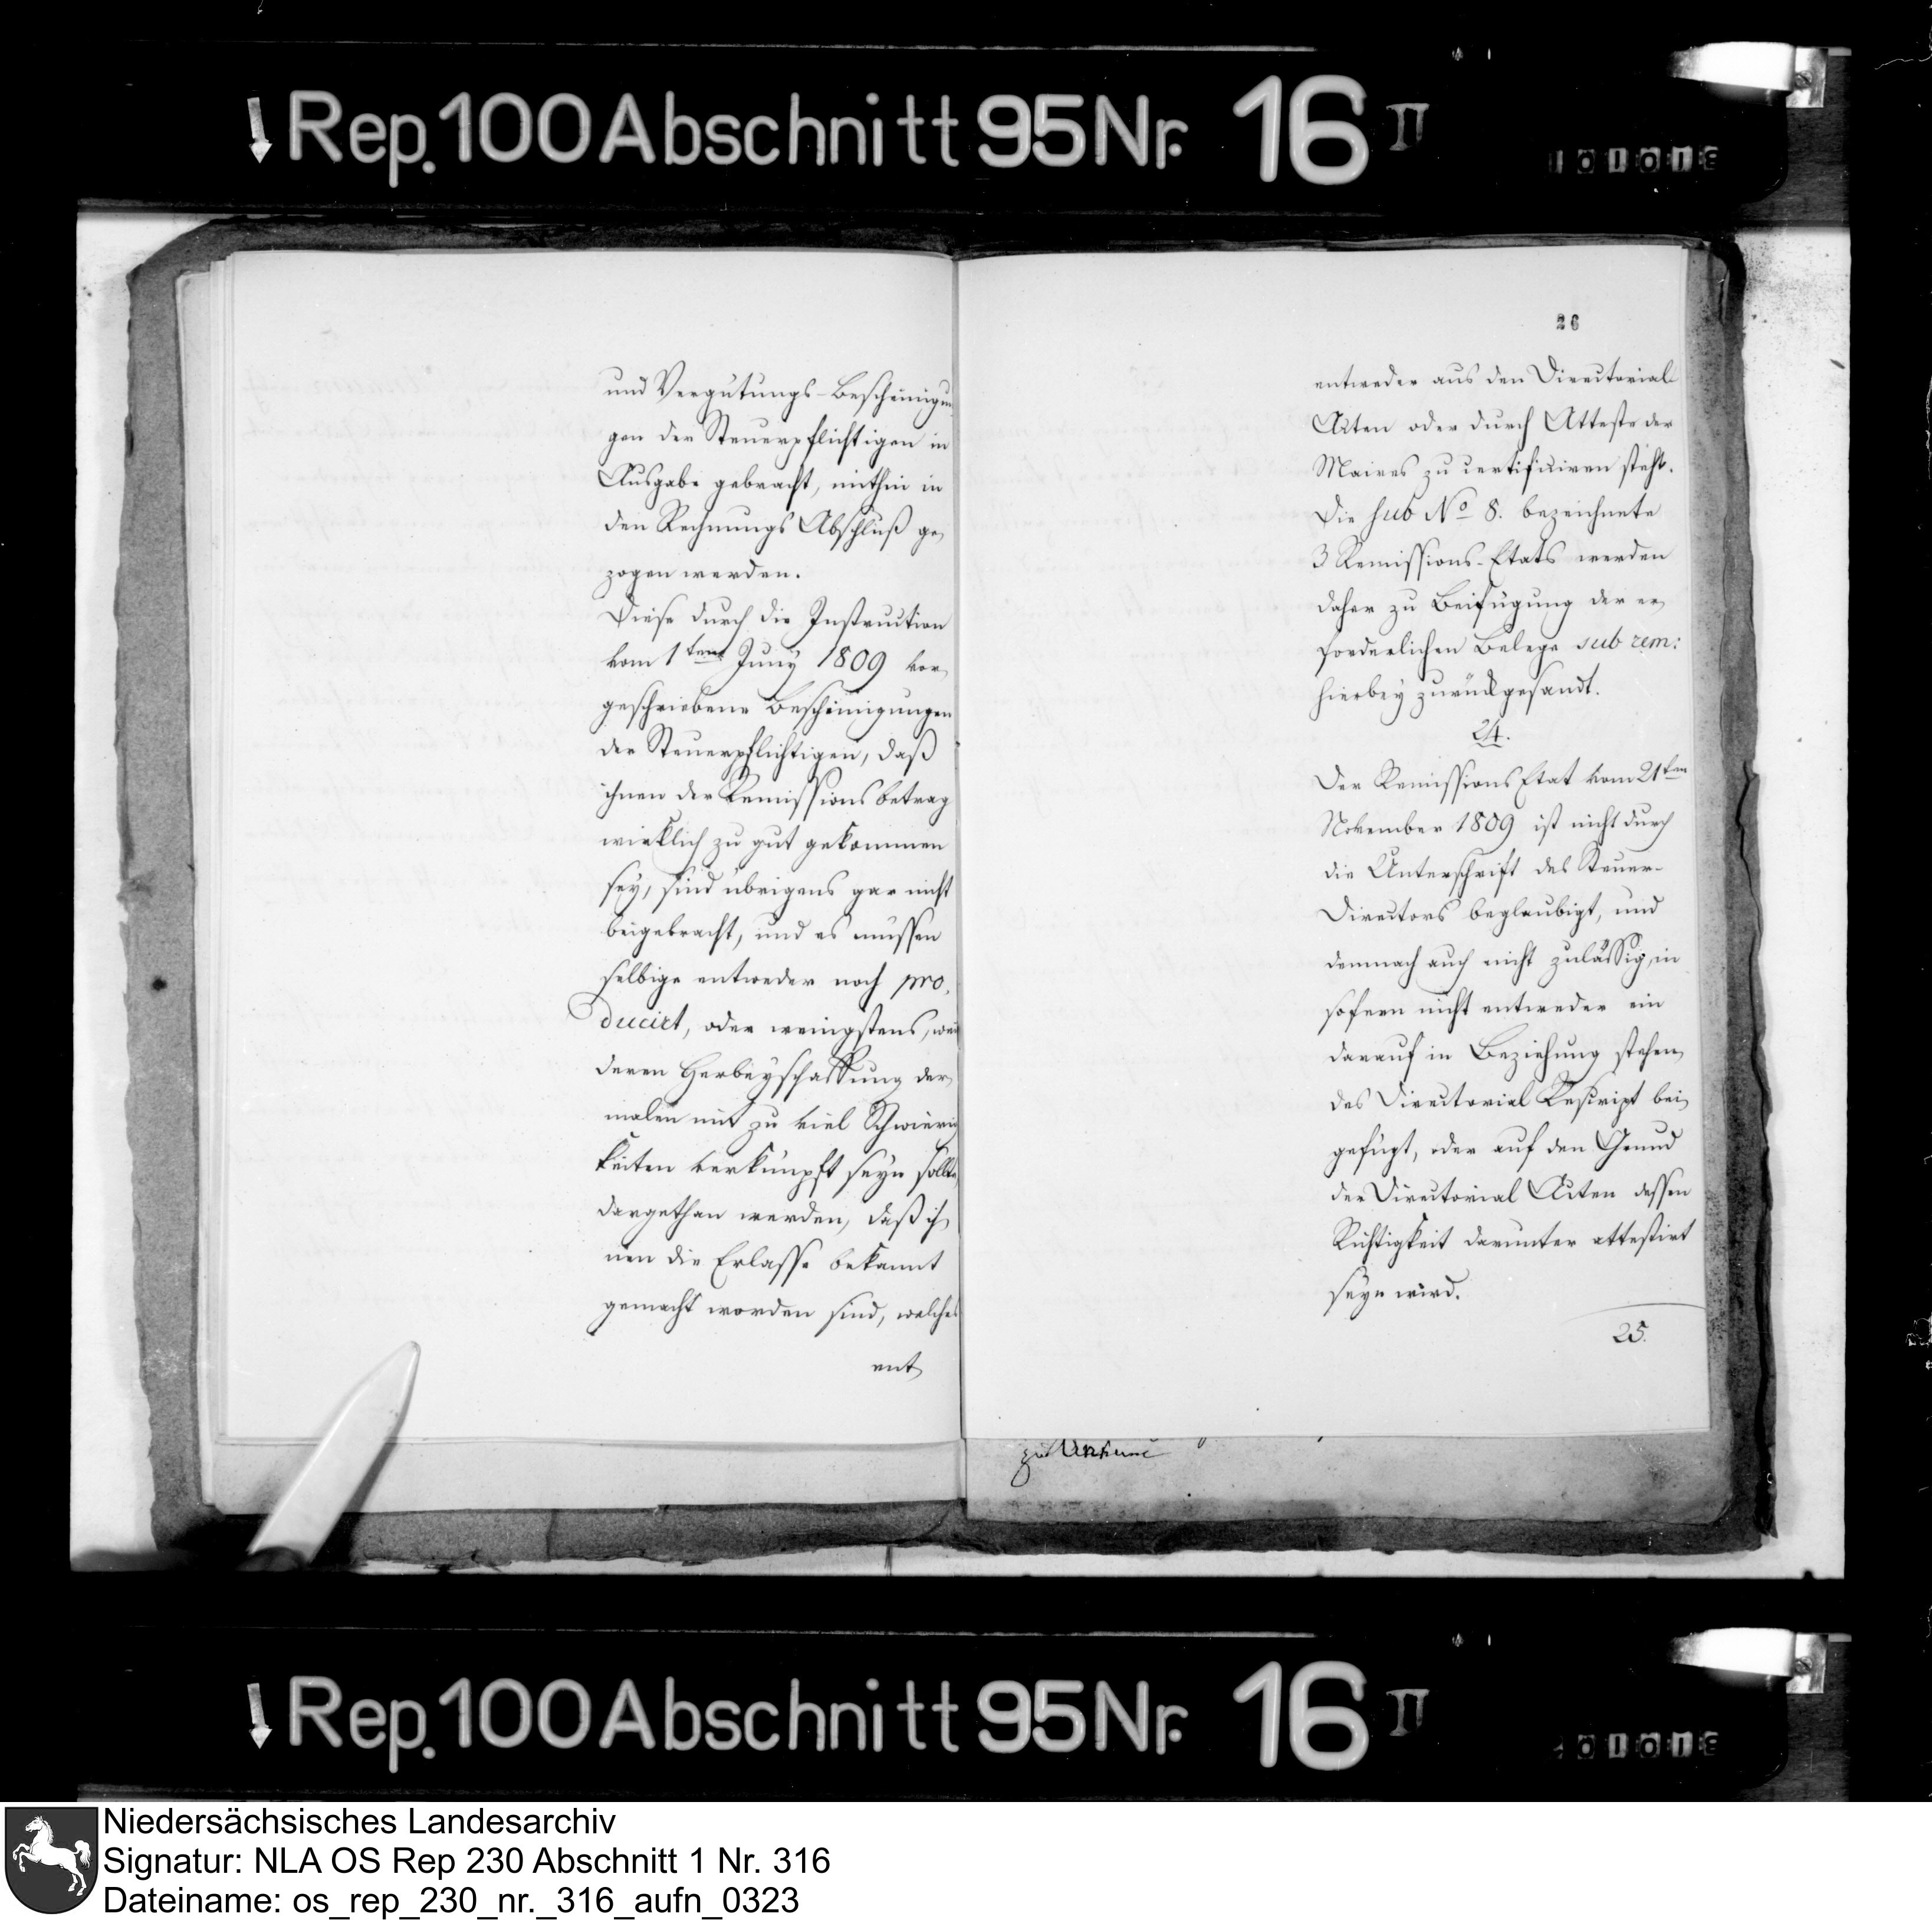 Rep. 100 Abschnitt 95 Nr. 16 II
und Vergütungs-Bescheinigun
gen der Steuerpflichtigen in
Ausgabe gebracht, mithin in
den Rechnungs Abschluß ge-
zogen werden.
Diese durch die Instruction
vom 1ten Juny 1809 vor-
geschriebene Bescheinigungen
der Steuerpflichtigen, daß
ihnen der Remissionsbetrag
wirklich zu gut gekommen
sey, sind übrigens gar nicht
beigebracht, und es müssen
selbige entweder noch pro-
ducirt, oder wenigstens, wenn
deren Herbeyschaffung der-
malen mit zu viel Schwierig
keiten verknüpft seyn sollte,
dargethan werden, daß ih-
nen die Erlasse bekannt
gemacht worden sind, welches
ent-
26
entweder aus den Directorial-
Acten oder durch Atteste der
Maires zu certificiren steht.
Die sub No 8. bezeichnete
3 Remissions-Etats werden
daher zu Beifügung der er-
forderlichen Belege sub rem:
hierbey zurückgesandt.
24.
Der Remissions Etat vom 21ten
November 1809 ist nicht durch
die Unterschrift des Steuer-
Directors beglaubigt, und
demnach auch nicht zulässig, in
sofern nicht entweder ein
darauf in Beziehung stehen-
des Directorial Rescript bei-
gefügt, oder auf den Grund
der Directorial Acten dessen
Richtigkeit darunter attestirt
seyn wird.
25.
Rep. 100 Abschnitt 95 Nr. 16 II
Niedersächsisches Landesarchiv
Signatur: NLA OS Rep 230 Abschnitt 1 Nr. 316
Dateiname: os_rep_230_nr._316_aufn_0323